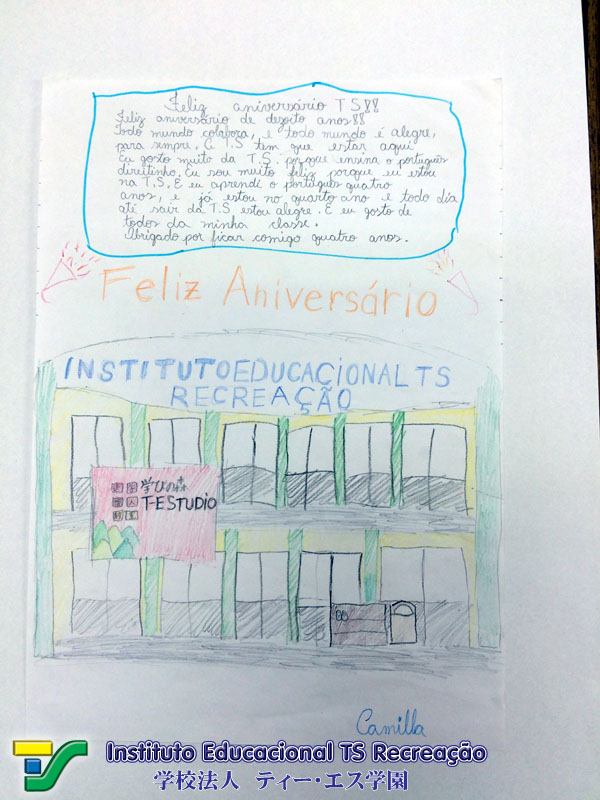 Feliz aniversário TS!!
Feliz aniversário de dezoito anos!!
Todo mundo colabora, e todo mundo é alegre,
para sempre. E T.S tem que estar aqui
Eu gosto muito da T.S. porque ensina o português
direitinho. Eu sou muito feliz porque eu estou
na T.S. E eu aprendi o português quatro
anos, e já estou no quarto ano e todo dia
até sair da T.S estou alegre. E eu gosto de
todos da minha classe.
Obrigado por ficar comigo quatro anos.
Feliz Aniversário
INSTITUTO EDUCACIONAL TS
RECREAÇÃO
学びの森
T-ESTUDIO
Camilla
TS
Instituto Educacional TS Recreação
学校法人 ティー・エス学園